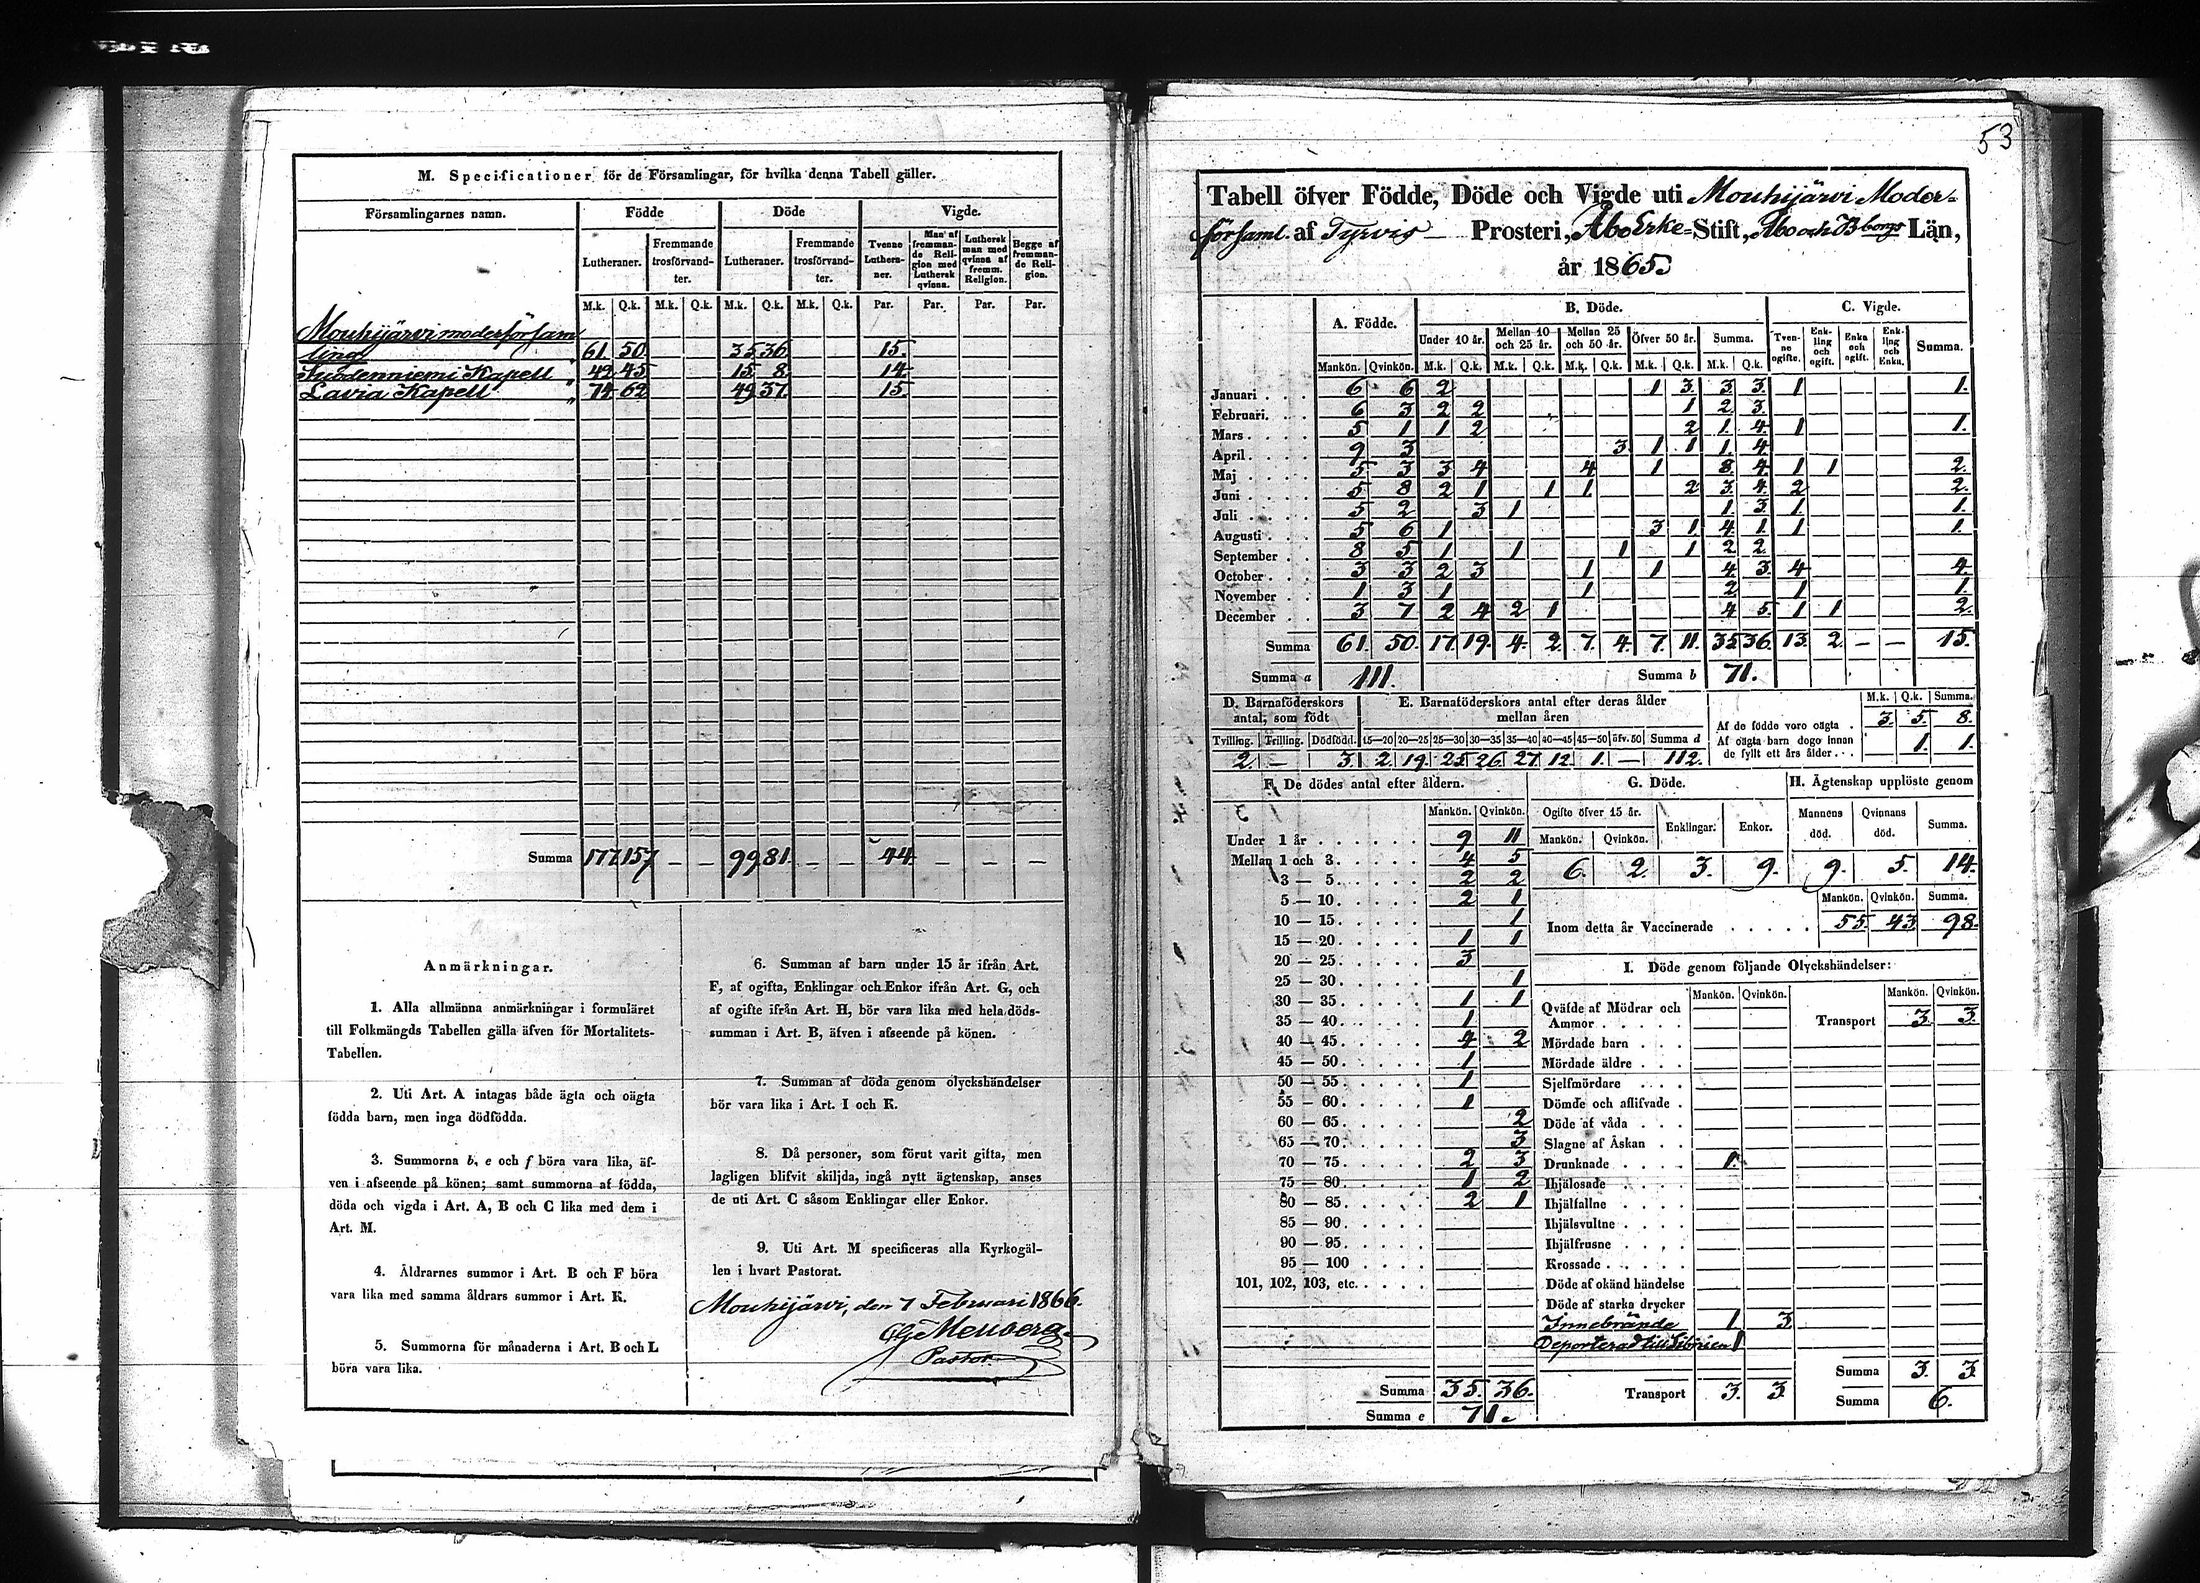 M. Specificationer för de Församlingar, för hvilka denna Tabell gäller.
Församlingarnes namn. Födde Döde Vigde.
Lutheraner. Fremmande trosförvandter. Lutheraner. Fremmande trosförvandter. Tvenne Lutheraner. Man af fremmande Religion med Luthersk qvinna. Luthersk man med qvinna af fremm. Religion. Begge af fremmande Religion.
M.k. Q.k. M.k. Q.k. M.k. Q.k. M.k. Q.k. Par. Par. Par. Par.
Mouhijärvi moderförsam
ling " 61. 50. 35 36. 15.
Suodenniemi Kapell " 42 45 15. 8. 14.
Lavia Kapell " 74 62 49 37. 15.
Summa 177 157 — — 99 81. — — 44 — — —
Anmärkningar.
1. Alla allmänna anmärkningar i formuläret
till Folkmängds Tabellen gälla äfven för Mortalitets-
Tabellen.
2. Uti Art. A intagas både ägta och oägta
födda barn, men inga dödfödda.
3. Summorna b, e och f böra vara lika, äf-
ven i afseende på könen; samt summorna af födda,
döda och vigda i Art. A, B och C lika med dem i
Art. M.
4. Åldrarnes summor i Art. B och F böra
vara lika med samma åldrars summor i Art. K.
5. Summorna för månaderna i Art. B och L
böra vara lika.
6. Summan af barn under 15 år ifrån Art.
F, af ogifta, Enklingar och Enkor ifrån Art. G, och
af ogifte ifrån Art. H, bör vara lika med hela döds-
summan i Art. B, äfven i afseende på könen.
7. Summan af döda genom olyckshändelser
bör vara lika i Art. I och K.
8. Då personer, som förut varit gifta, men
lagligen blifvit skiljda, ingå nytt ägtenskap, anses
de uti Art. C såsom Enklingar eller Enkor.
9. Uti Art. M specificeras alla Kyrkogäl-
len i hvart Pastorat.
Mouhijärvi, den 7 Februari 1866.
Pastor
53
Tabell öfver Födde, Döde och Vigde uti Mouhijärvi Moder=
församl. af Tyrvis Prosteri, Åbo Erke=Stift, Åbo och Bborgs Län,
år 1865.
A. Födde. B. Döde. C. Vigde.
Under 10 år. Mellan 10 och 25 år. Mellan 25 och 50 år. Öfver 50 år. Summa. Tvenne ogifte. Enkling och ogift. Enka och ogift. Enkling och Enka. Summa.
Mankön. Qvinkön. M.k. Q.k. M.k. Q.k. M.k. Q.k. M.k. Q.k. M.k. Q.k.
Januari . . . 6 6 2 1 3. 3 3. 1 1.
Februari. . . 6 3 2 2 1 2 3.
Mars . . . . 5 1 1 2 2 1. 4. 1 1.
April. . . . 9 3 3 1 1 1. 4
Maj . . . . 5 3 3 4 4 1 8. 4. 1 1 2.
Juni . . . . 5 8 2 1 1 1. 2 3. 4. 2 2.
Juli . . . . 5 2 3 1 1 3. 1. 1.
Augusti . . . 5 6 1 3 1 4. 1. 1 1.
September . . 8 5 1 1 1 1 2 2.
October . . . 3 3 2 3 1 1 4. 3. 4 4.
November . . 1 3 1 1 2 1 1.
December . . 3 7 2 4 2 1 4 5. 1 1 2.
Summa 61. 50. 17. 19. 4. 2. 7. 4. 7. 11. 35 36. 13. 2. — — 15.
Summa a 111. Summa b 71.
D. Barnaföderskors antal, som födt E. Barnaföderskors antal efter deras ålder mellan åren
M.k. Q.k. Summa.
Af de födde voro oägta . 3. 5. 8.
Af oägta barn dogo innan de fyllt ett års ålder . . . 1. 1.
Tvilling. Trilling. Dödfödd. 15—20 20—25 25—30 30—35 35—40 40—45 45—50 öfv. 50 Summa d
2. — 3. 2. 19. 25. 26. 27. 12. 1. — 112.
F. De dödes antal efter åldern.
Mankön. Qvinkön.
Under 1 år . . . . . . 9 11
Mellan 1 och 3. . . . . 4 5
3 — 5. . . . . 2 2
5 — 10. . . . . 2 1
10 — 15. . . . . 1
15 — 20. . . . . 1 1
20 — 25. . . . . 3
25 — 30. . . . . 1
30 — 35. . . . . 1 1
35 — 40. . . . . 1
40 — 45. . . . . 4 2
45 — 50. . . . . 1
50 — 55. . . . . 1
55 — 60. . . . . 1
60 — 65. . . . . 2
65 — 70. . . . . 3
70 — 75. . . . . 2 3
75 — 80. . . . . 1 2
80 — 85. . . . . 2 1
85 — 90. . . . .
90 — 95. . . . .
95 — 100 . . . .
101, 102, 103, etc. . . . .
Summa 35. 36.
Summa e 71.
G. Döde. H. Ägtenskap upplöste genom
Ogifte öfver 15 år. Enklingar. Enkor. Mannens död. Qvinnans död. Summa.
Mankön. Qvinkön.
6. 2. 3. 9. 9. 5. 14.
Mankön. Qvinkön. Summa.
Inom detta år Vaccinerade . . . . . 55. 43. 98.
I. Döde genom följande Olyckshändelser:
Mankön. Qvinkön. Mankön. Qvinkön.
Qväfde af Mödrar och
Ammor . . . . . Transport 3. 3.
Mördade barn . . .
Mördade äldre . . .
Sjelfmördare . . .
Dömde och aflifvade .
Döde af våda . . .
Slagne af Åskan . .
Drunknade . . . . 1.
Ihjälosade . . . .
Ihjälfallne . . . .
Ihjälsvultne . . . .
Ihjälfrusne . . . .
Krossade . . . . .
Döde af okänd händelse
Döde af starka drycker
Innebrände 1 3.
Deporterad till Sibirien 1
Summa 3. 3
Transport 3. 3
Summa 6.